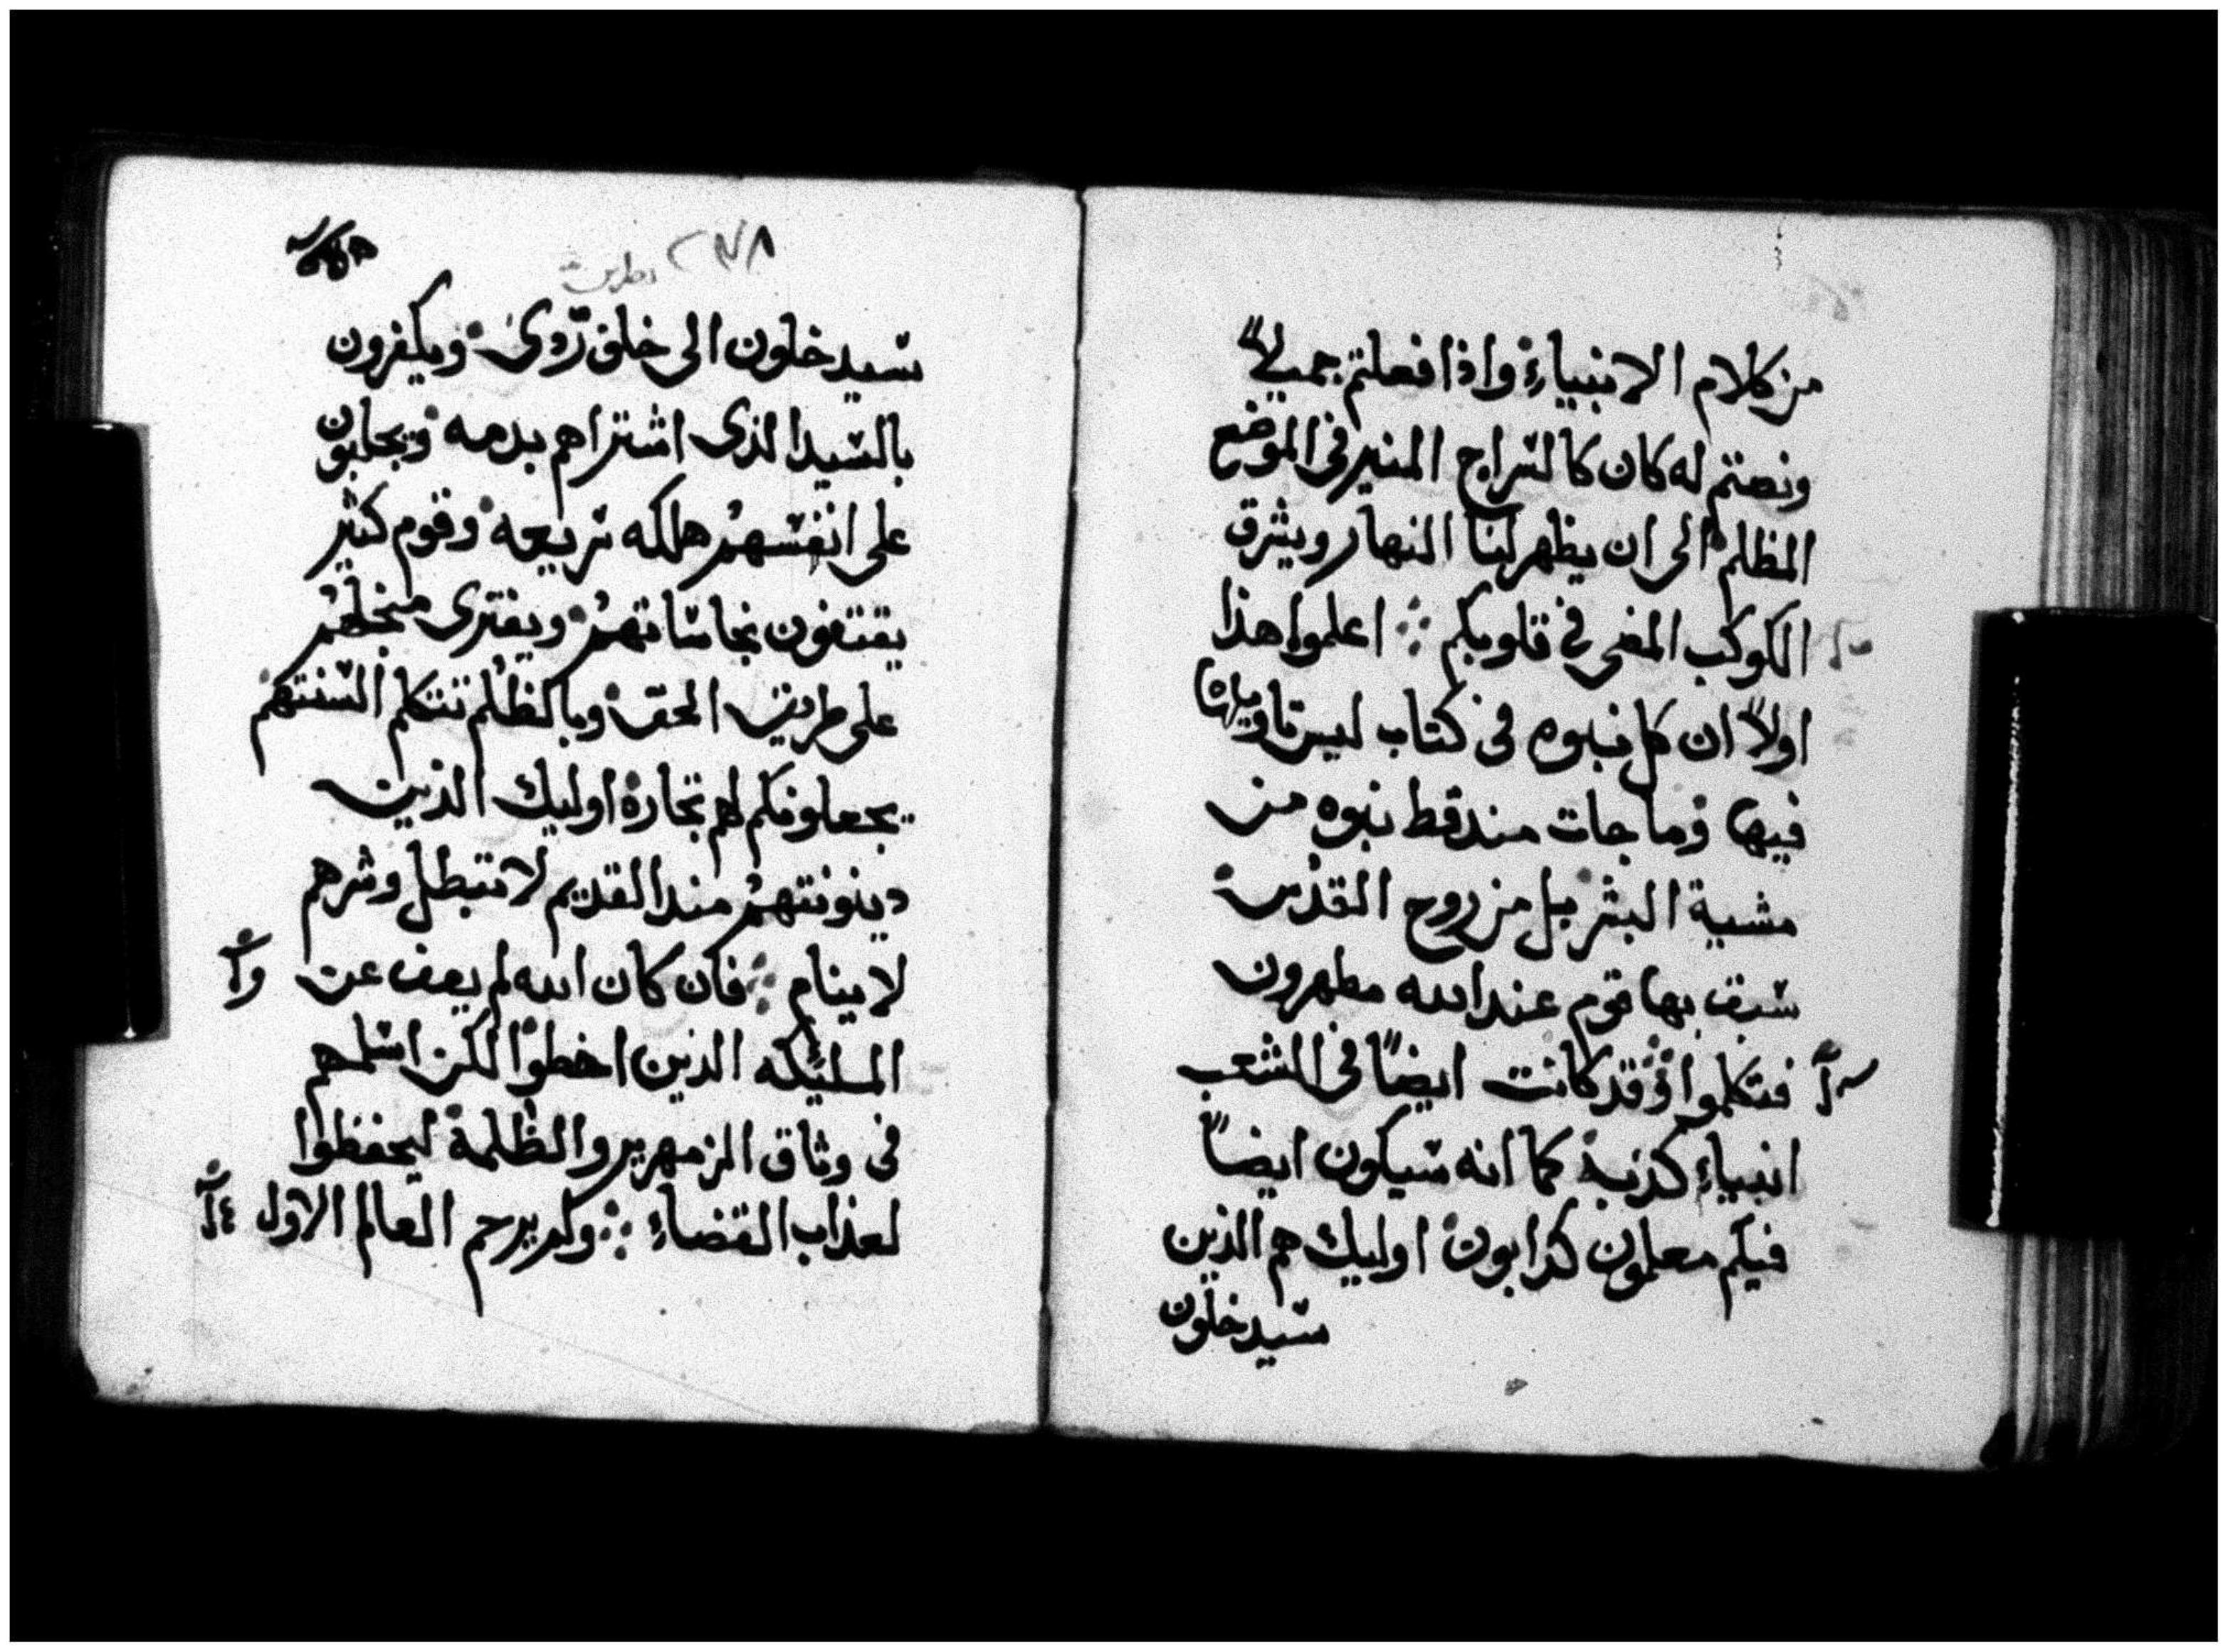 من كلام الانبياء واذا فعلتم جميلاً
ونصتم له كان كالسراج المنير فى الموضع
المظلم الى ان يظهر لنا النهار ويشرق
الكوكب المضى فى قلوبكم ܀ اعلموا هذا
اولاً ان كل نبوه فى كتاب ليس تاويلها
فيها وما جات مند قط نبوه من
مشية البشر بل من روح القدس
سبق بها قوم عند الله مطهرون
فتكلموا ܀ وقد كانت ايضاً فى الشعب
انبياء كذبة كما انه سيكون ايضاً
فيكم معلمون كدابون اوليك هم الذين
سيدخلون
٢٧٨
سيدخلون الى خلق ردى ويكفرون
بالسيد الذى اشتراهم بدمه ويجلبون
على انفسهم هلكه سريعه وقوم كثير
يقتفون نجاساتهم ويفترى منجلهم
على طريق الحق وبالظلم تتكلم السنتهم
يجعلونكم لهم تجارة اوليك الذين
دينونتهم مند القديم لا تبطل وشرهم
لا ينام ܀ فان كان الله لم يعف عن
المليكه الذين اخطوا لكن اسلمهم
فى وثاق الزمهرير والظلمة ليحفظوا
لعذاب القضاء ܀ ولم يرحم العالم الاول